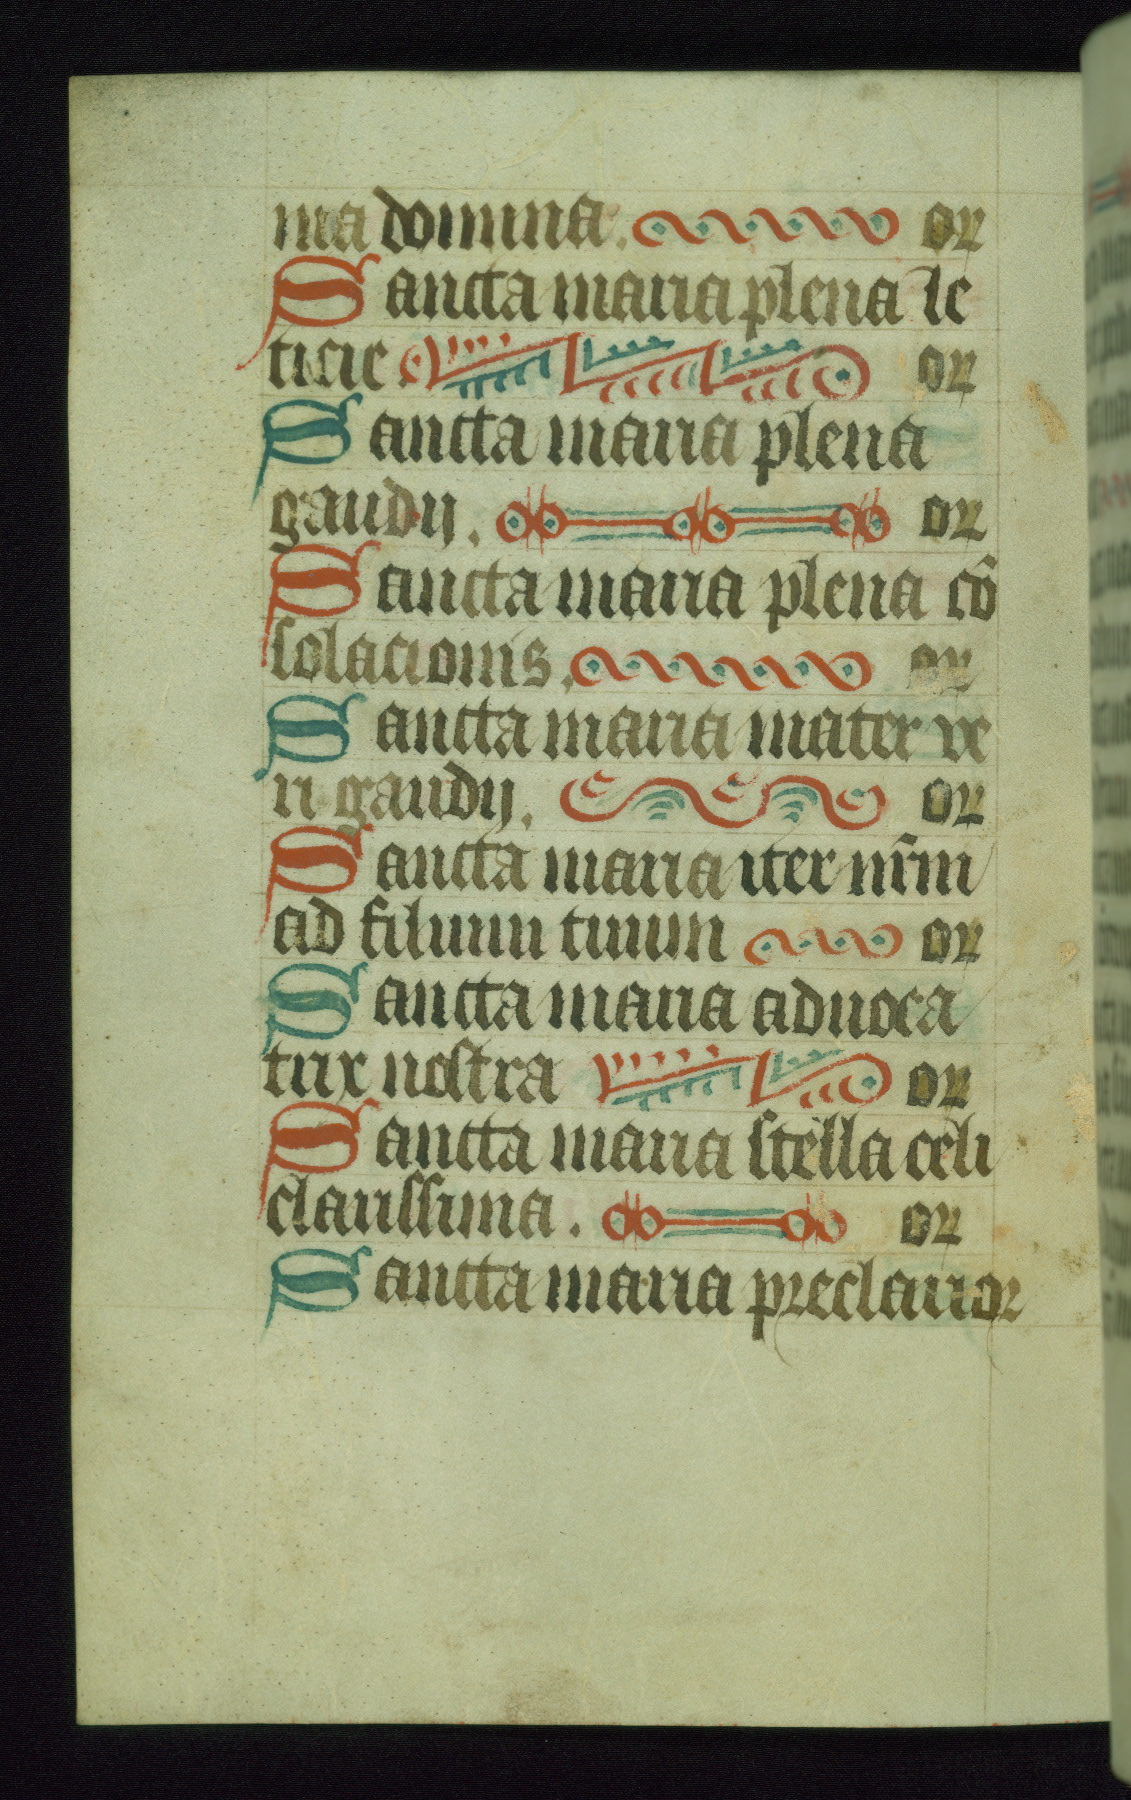 ma domina. or
Sancta maria plena le
ticie or
Sancta maria plena
gaudij. or
Sancta maria plena cō
solacionis. or
Sancta maria mater ve
ri gaudij. or
Sancta maria iter nr̄m
ad filium tuum or
Sancta maria aduoca
trix nostra or
Sancta maria stella celi
clarissima. or
Sancta maria preclarior